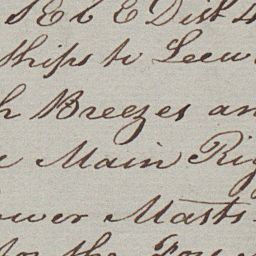 SEbE Dist 4
Ships to Leew
h Breezes an
Main Rig
ower Masts
for the Fou